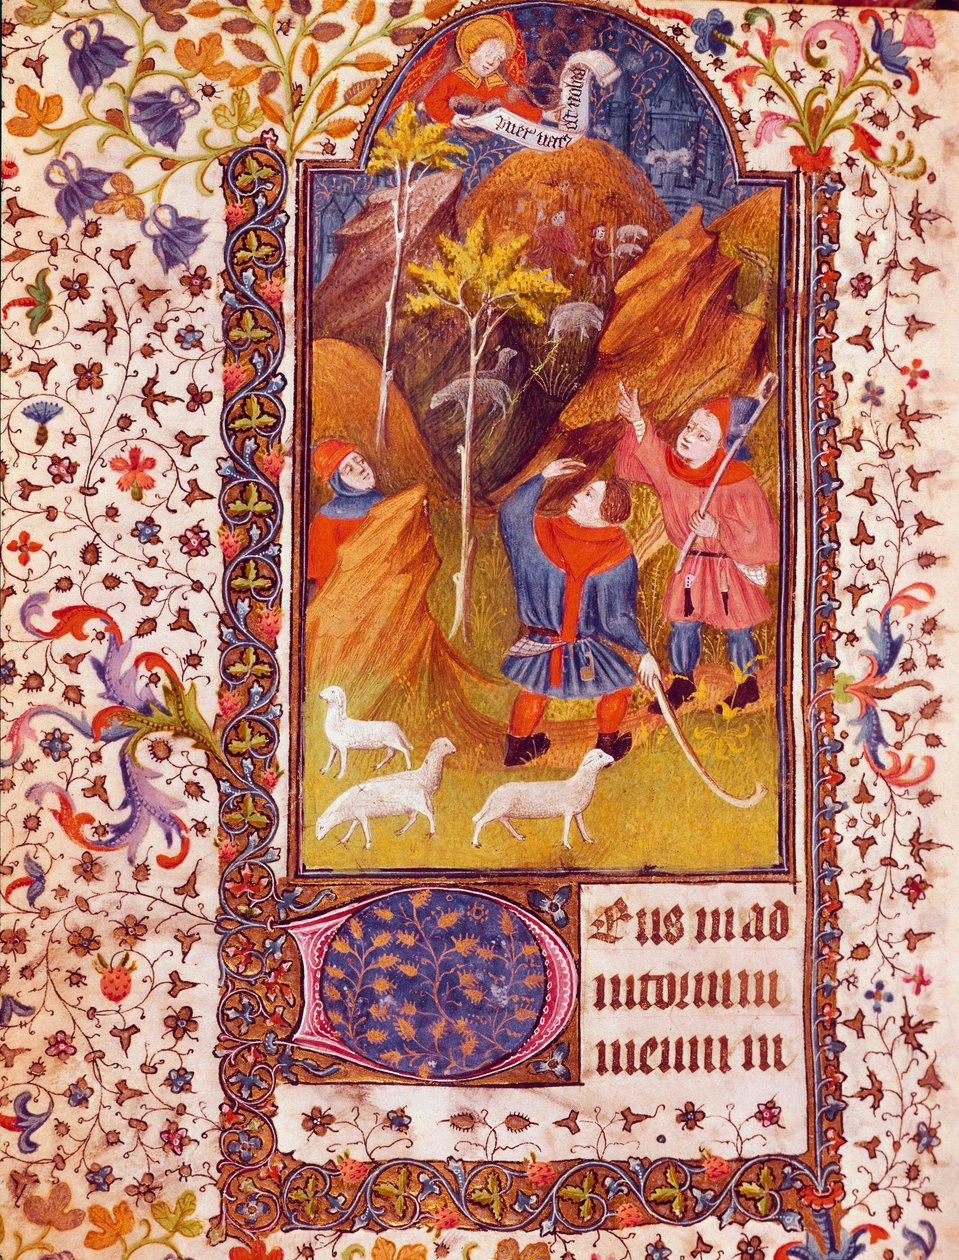 puer nat9
est nobis
DEus in ad
iutorium
meum in